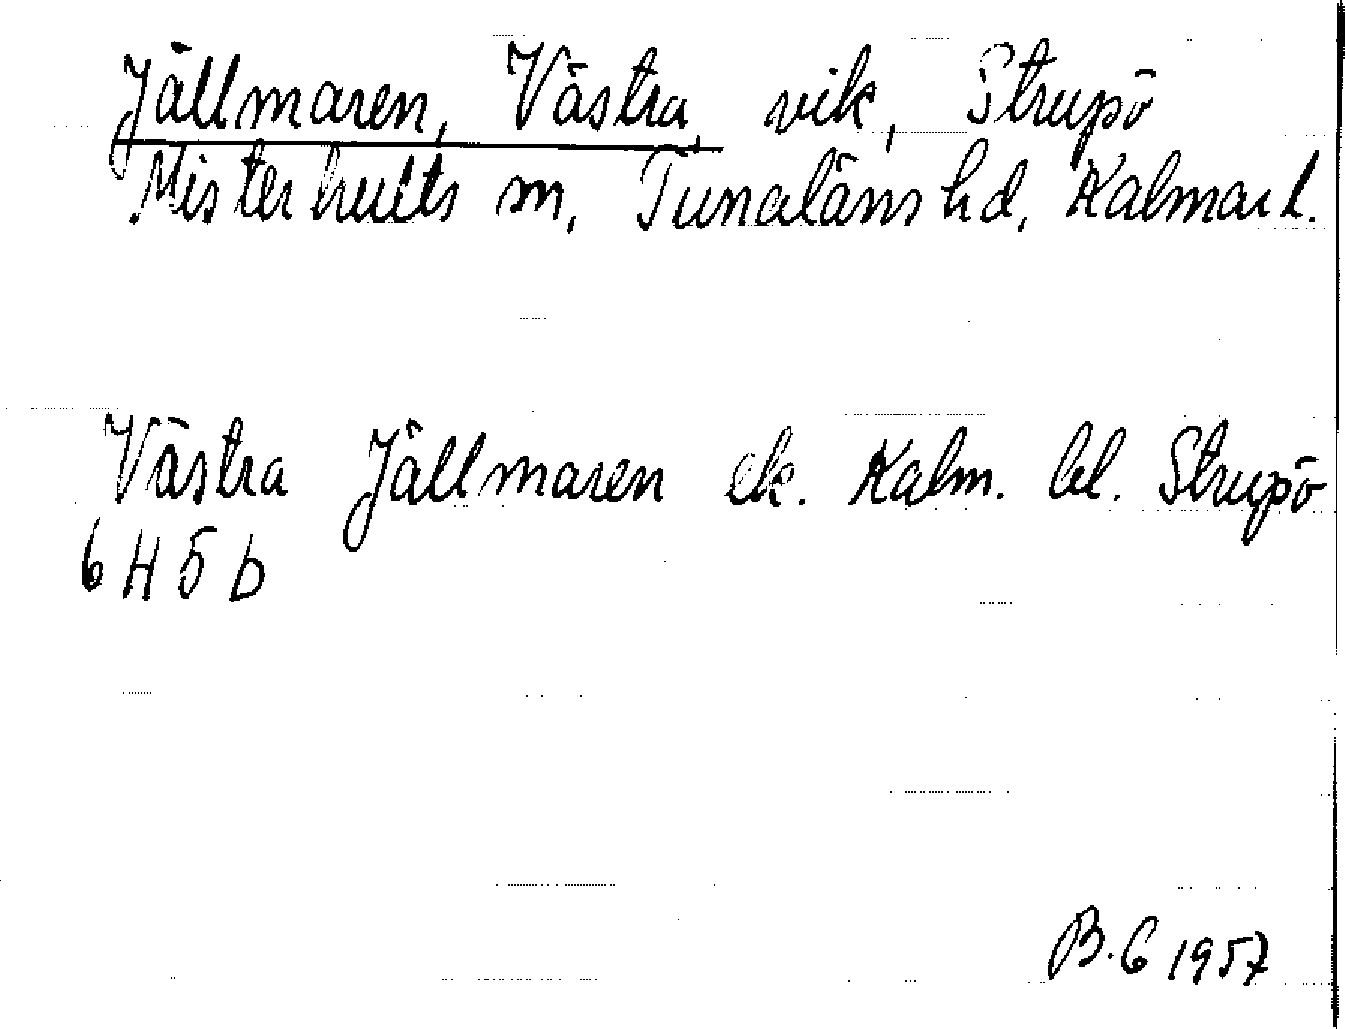 Jällmaren, Västra, vik, Strupö
Misterhults sn, Tunaläns hd, Kalmar l.
Västra Jällmaren ek. Kalm. bl. Strupö
6 H 5 b
B.G 1957